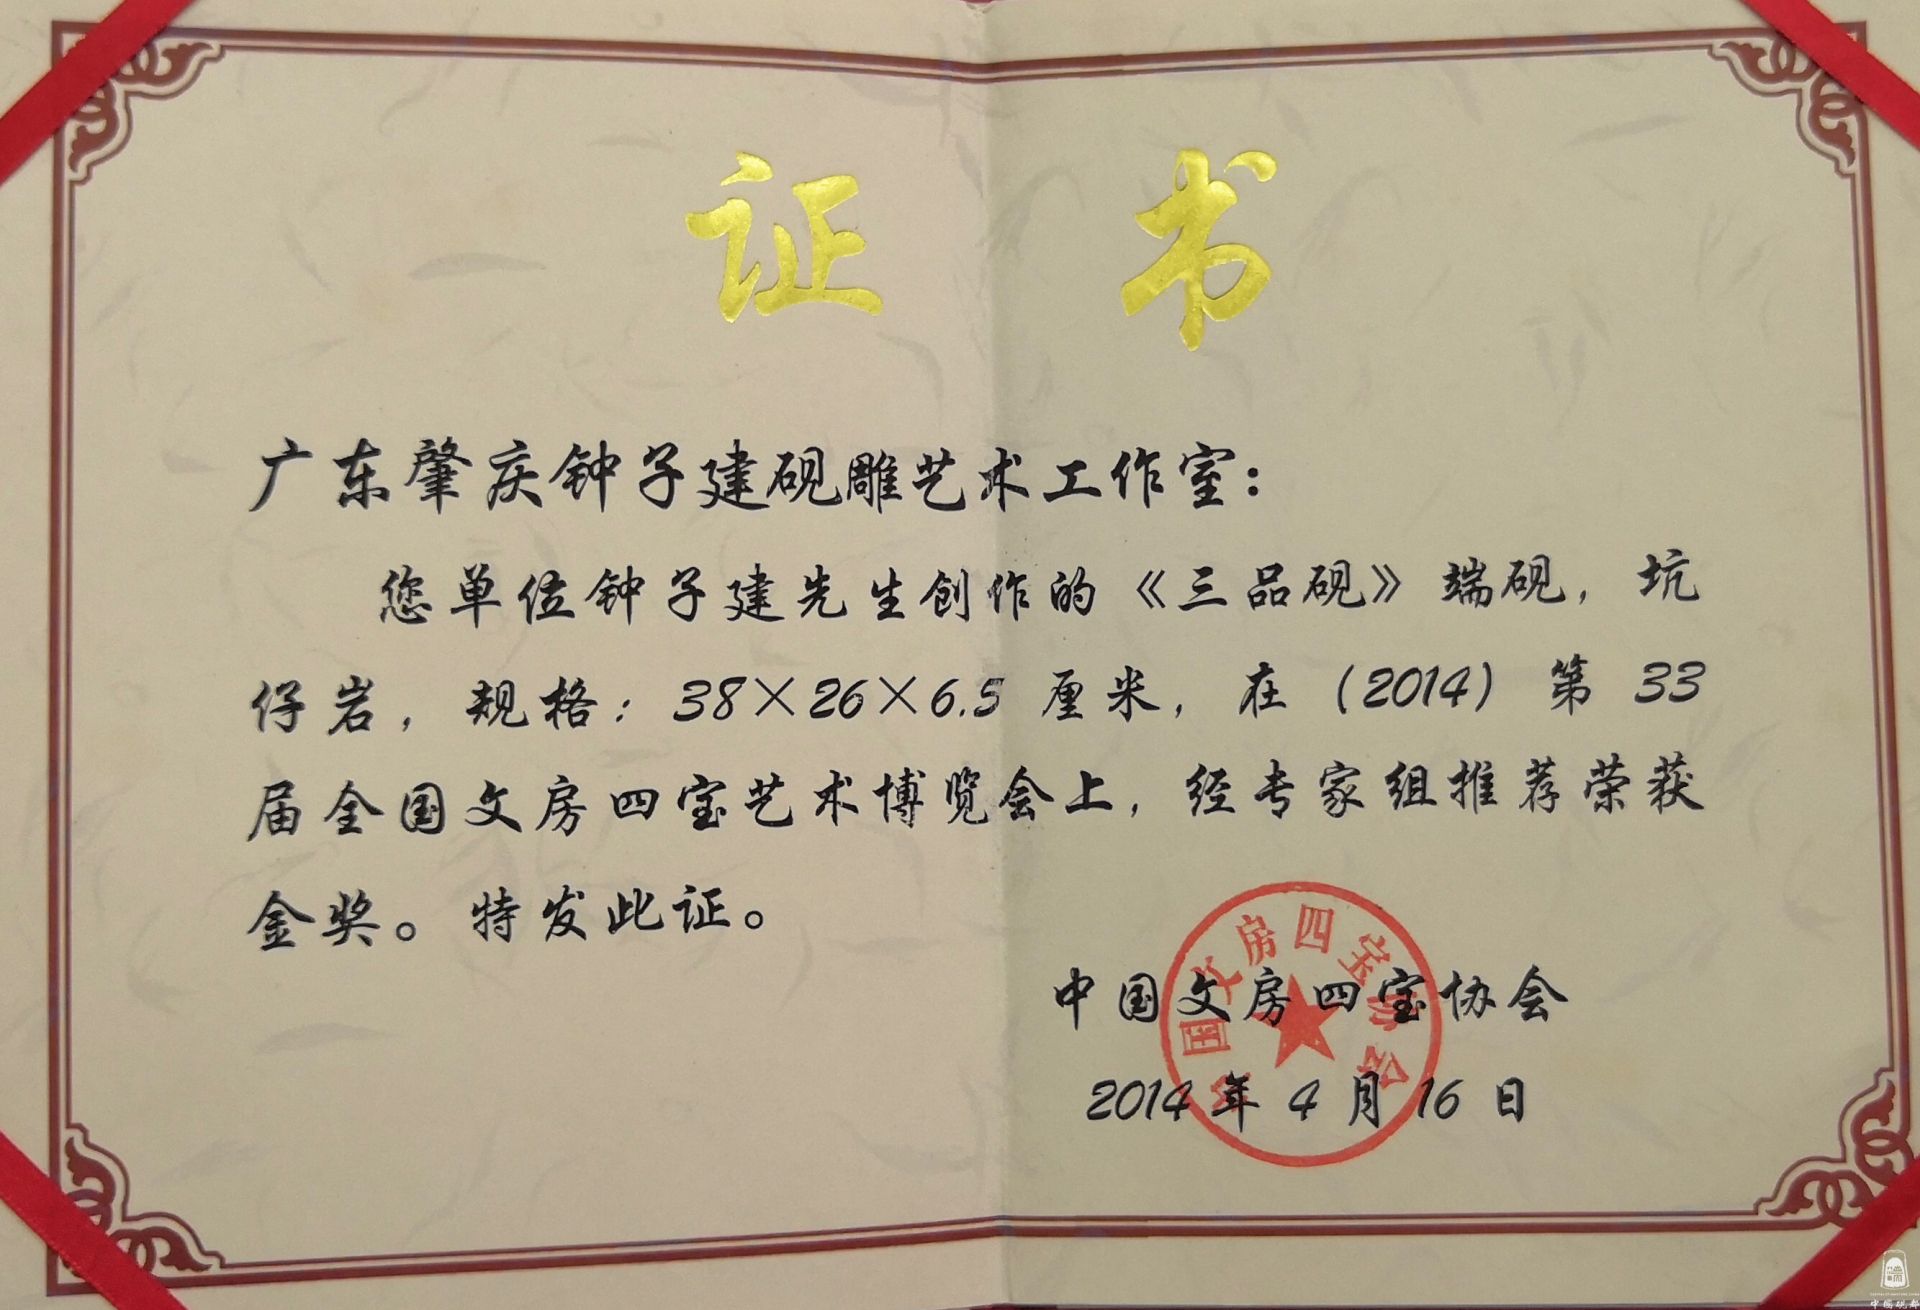 证书
广东肇庆钟子建砚雕艺术工作室：
您单位钟子建先生创作的《三品砚》端砚，坑
仔岩，规格：38×26×6.5厘米，在（2014）第33
届全国文房四宝艺术博览会上，经专家组推荐荣获
金奖。特发此证。
中国文房四宝协会
2014年4月16日
中国文房四宝协会
中国砚都